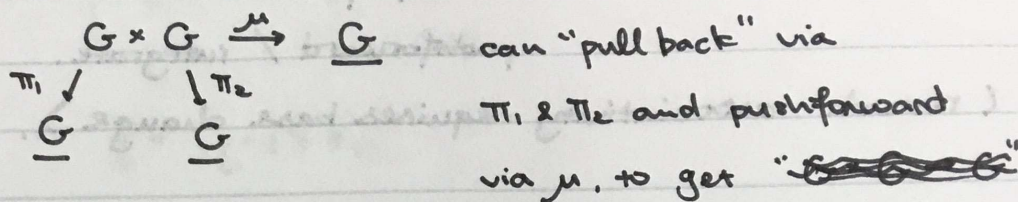 G × G →μ G can "pull back" via
π₁ ↙ ↓ π₂
G G π₁ & π₂ and pushforward
via μ, to get " "